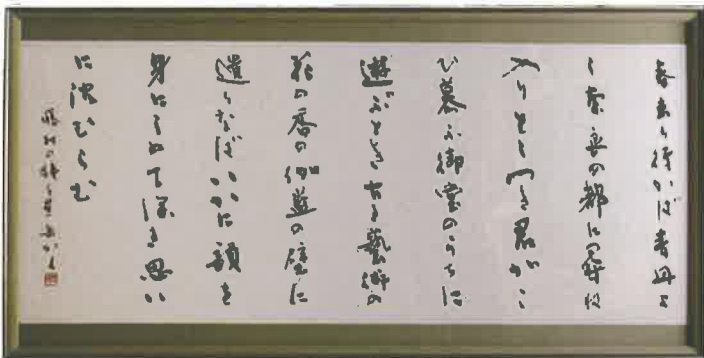 春去り行かば青丹よ
し奈良の都に尋ね
入りとしつき君がこ
ひ慕ふ御堂のうちに
遊ぶとき古き藝術の
花の香の伽藍の壁に
遺りなばいかに韻を
身にしめて深き思い
に沈むらむ